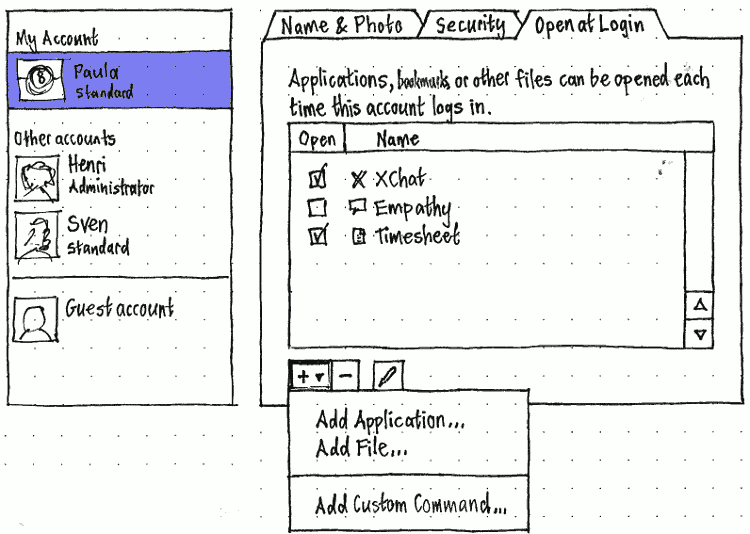 My Account
Paula
Standard
Other accounts
Henri
Administrator
Sven
Standard
Guest account
Name & Photo
Security
Open at Login
Applications, bookmarks or other files can be opened each
time this account logs in.
Open Name
XChat
Empathy
Timesheet
Add Application...
Add File...
Add Custom Command...